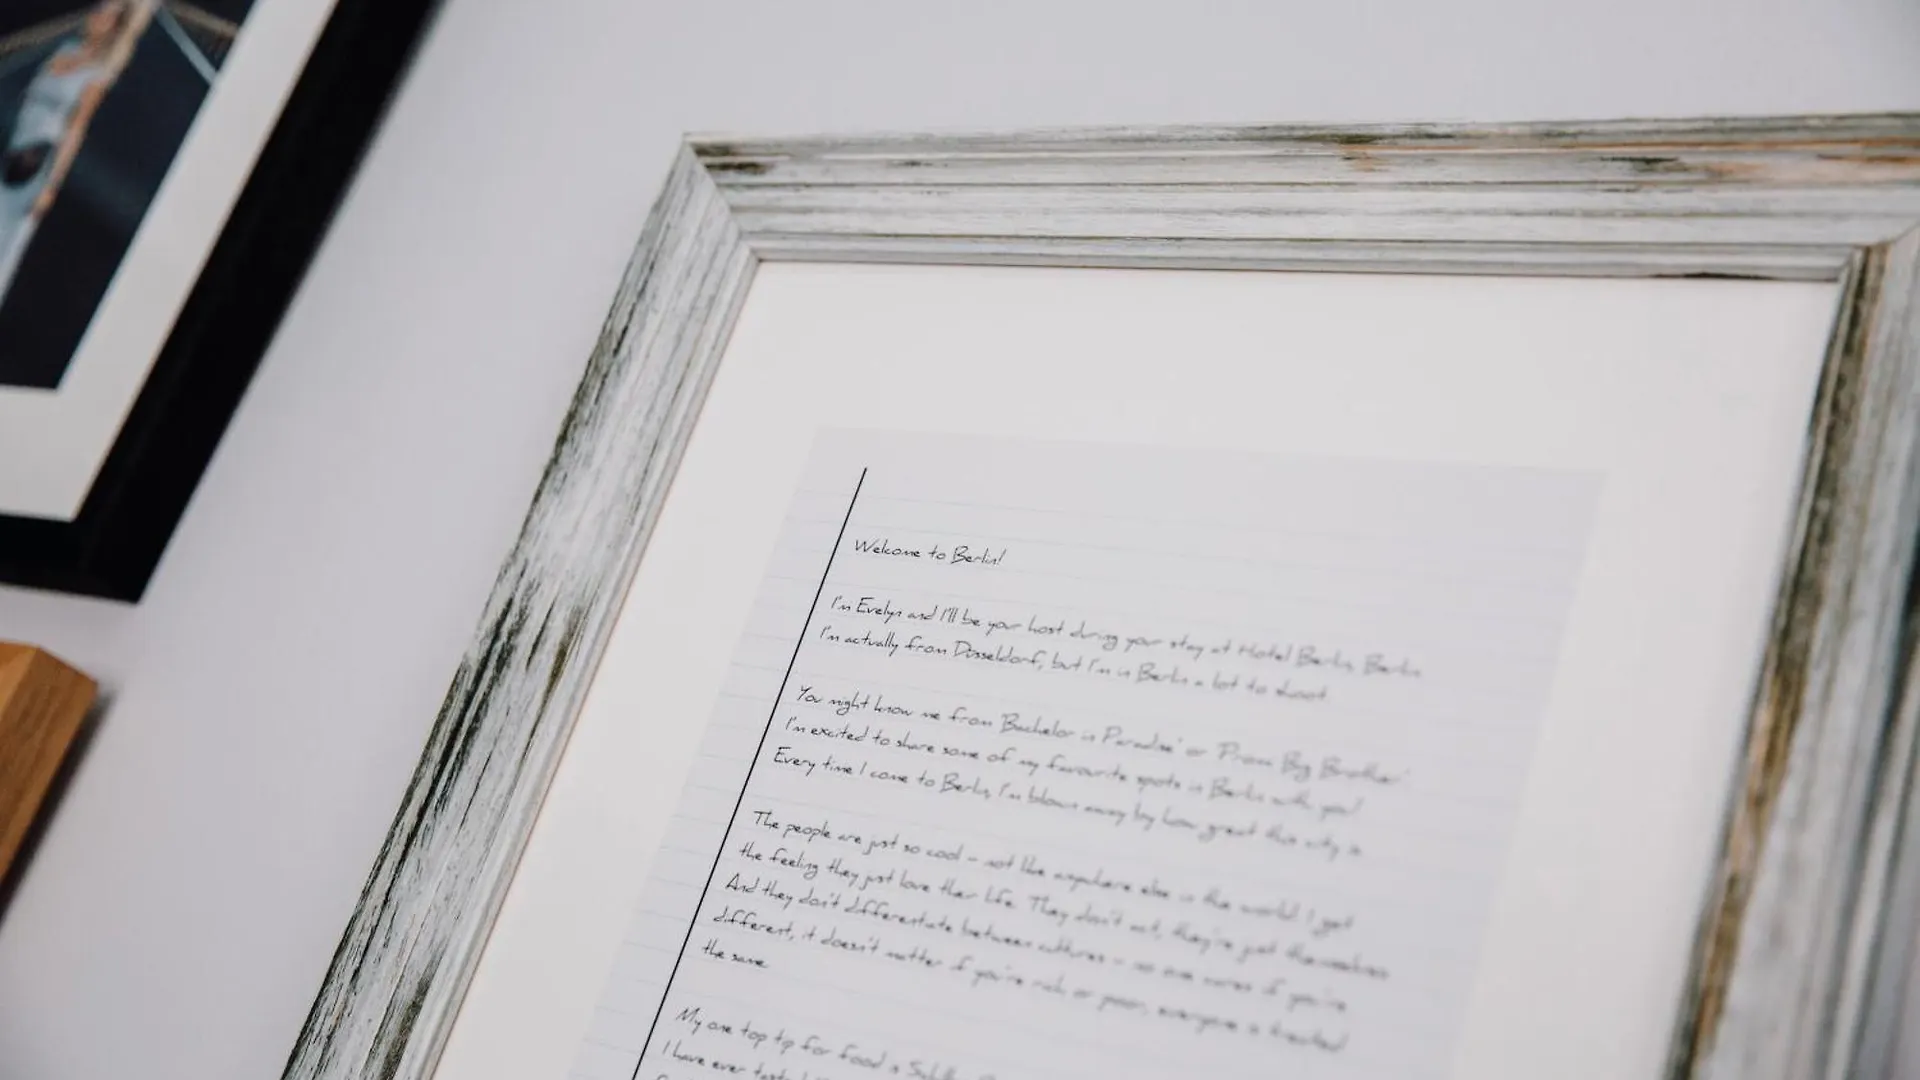 Welcome to Berlin!
I'm Evelyn and I'll be your host during your stay at Hotel Berlin, Berlin.
I'm actually from Düsseldorf, but I'm in Berlin a lot to shoot.
You might know me from 'Bachelor in Paradise' or 'Prom Big Brother'.
I'm excited to share some of my favourite spots in Berlin with you!
Every time I come to Berlin, I'm blown away by how great this city is.
The people are just so cool – not like anywhere else in the world. I get
the feeling they just love their life. They don't act, they're just themselves.
And they don't differentiate between cultures – no one cares if you're
different, it doesn't matter if you're rich or poor, everyone is treated
the same.
My one top tip for food is
I have ever